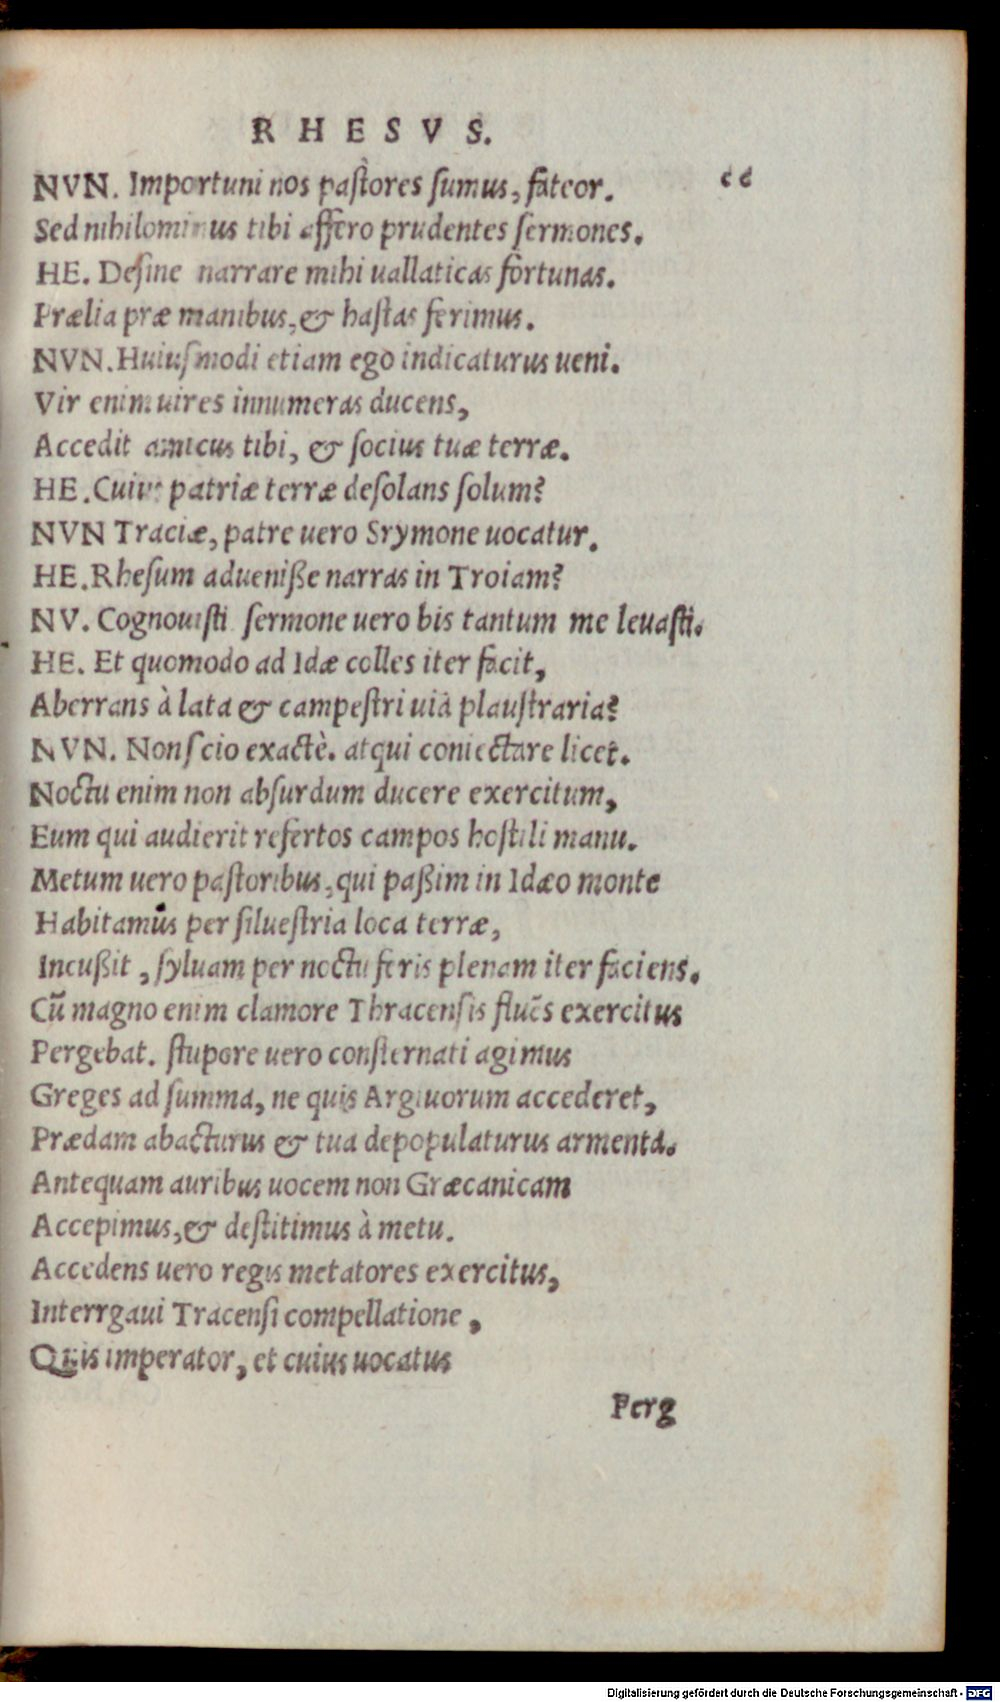 RHESVS.
NVN. Importuni nos paſtores ſumus, fateor. “
Sed nihilominus tibi affero prudentes ſermones.
HE. Deſine narrare mihi uallaticas fortunas.
Prælia præ manibus, & haſtas ferimus.
NVN. Huiuſmodi etiam ego indicaturus ueni.
Vir enim uires innumeras ducens,
Accedit amicus tibi, & ſocius tuæ terræ.
HE. Cuius patriæ terræ deſolans ſolum?
NVN Traciæ, patre uero Srymone uocatur.
HE. Rheſum adueniße narras in Troiam?
NV. Cognouiſti ſermone uero bis tantum me leuaſti.
HE. Et quomodo ad Idæ colles iter facit,
Aberrans à lata & campeſtri uia plauſtraria?
NVN. Non ſcio exactè. atqui coniectare licet.
Noctu enim non abſurdum ducere exercitum,
Eum qui audierit refertos campos hoſtili manu.
Metum uero paſtoribus, qui paßim in Idæo monte
Habitamus per ſilueſtria loca terræ,
Incußit, ſyluam per noctu feris plenam iter faciens.
Cū magno enim clamore Thracenſis fluēs exercitus
Pergebat. ſtupore uero conſternati agimus
Greges ad ſumma, ne quis Argiuorum accederet,
Prædam abacturus & tua depopulaturus armenta.
Antequam auribus uocem non Græcanicam
Accepimus, & deſtitimus à metu.
Accedens uero regis metatores exercitus,
Interrgaui Tracenſi compellatione,
Quis imperator, et cuius uocatus
Perg
Digitalisierung gefördert durch die Deutsche Forschungsgemeinschaft - DFG